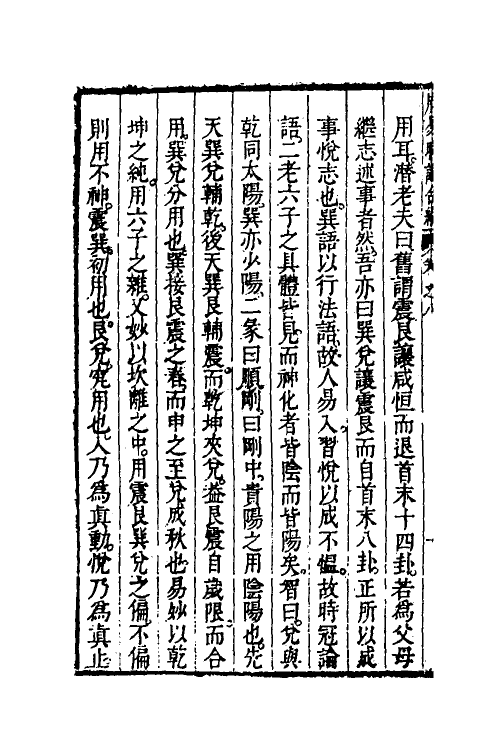 用耳潛老夫曰舊謂震艮讓咸恒而退首末十四卦若為父母
繼志述事者然吾亦曰巽兌讓震艮而自首末八卦正所以成
事悅志也巽語以行法語故人易入習悅以成不慍故時冠論
語二老六子之具體皆見而神化者皆陰而皆陽矣智曰兌與
乾同太陽巽亦少陽二彖曰順剛曰剛中貴陽之用陰陽也先
天巽兌輔乾後天巽艮輔震而乾坤夾兌益艮震自歲限而合
用巽兌分用也巽接艮震之春而申之至兌成秋也易妙以乾
坤之純用六子之雜又妙以坎離之中用震艮巽兌之偏不偏
則用不神震巽初用也艮兌究用也人乃為真動悅乃為真止